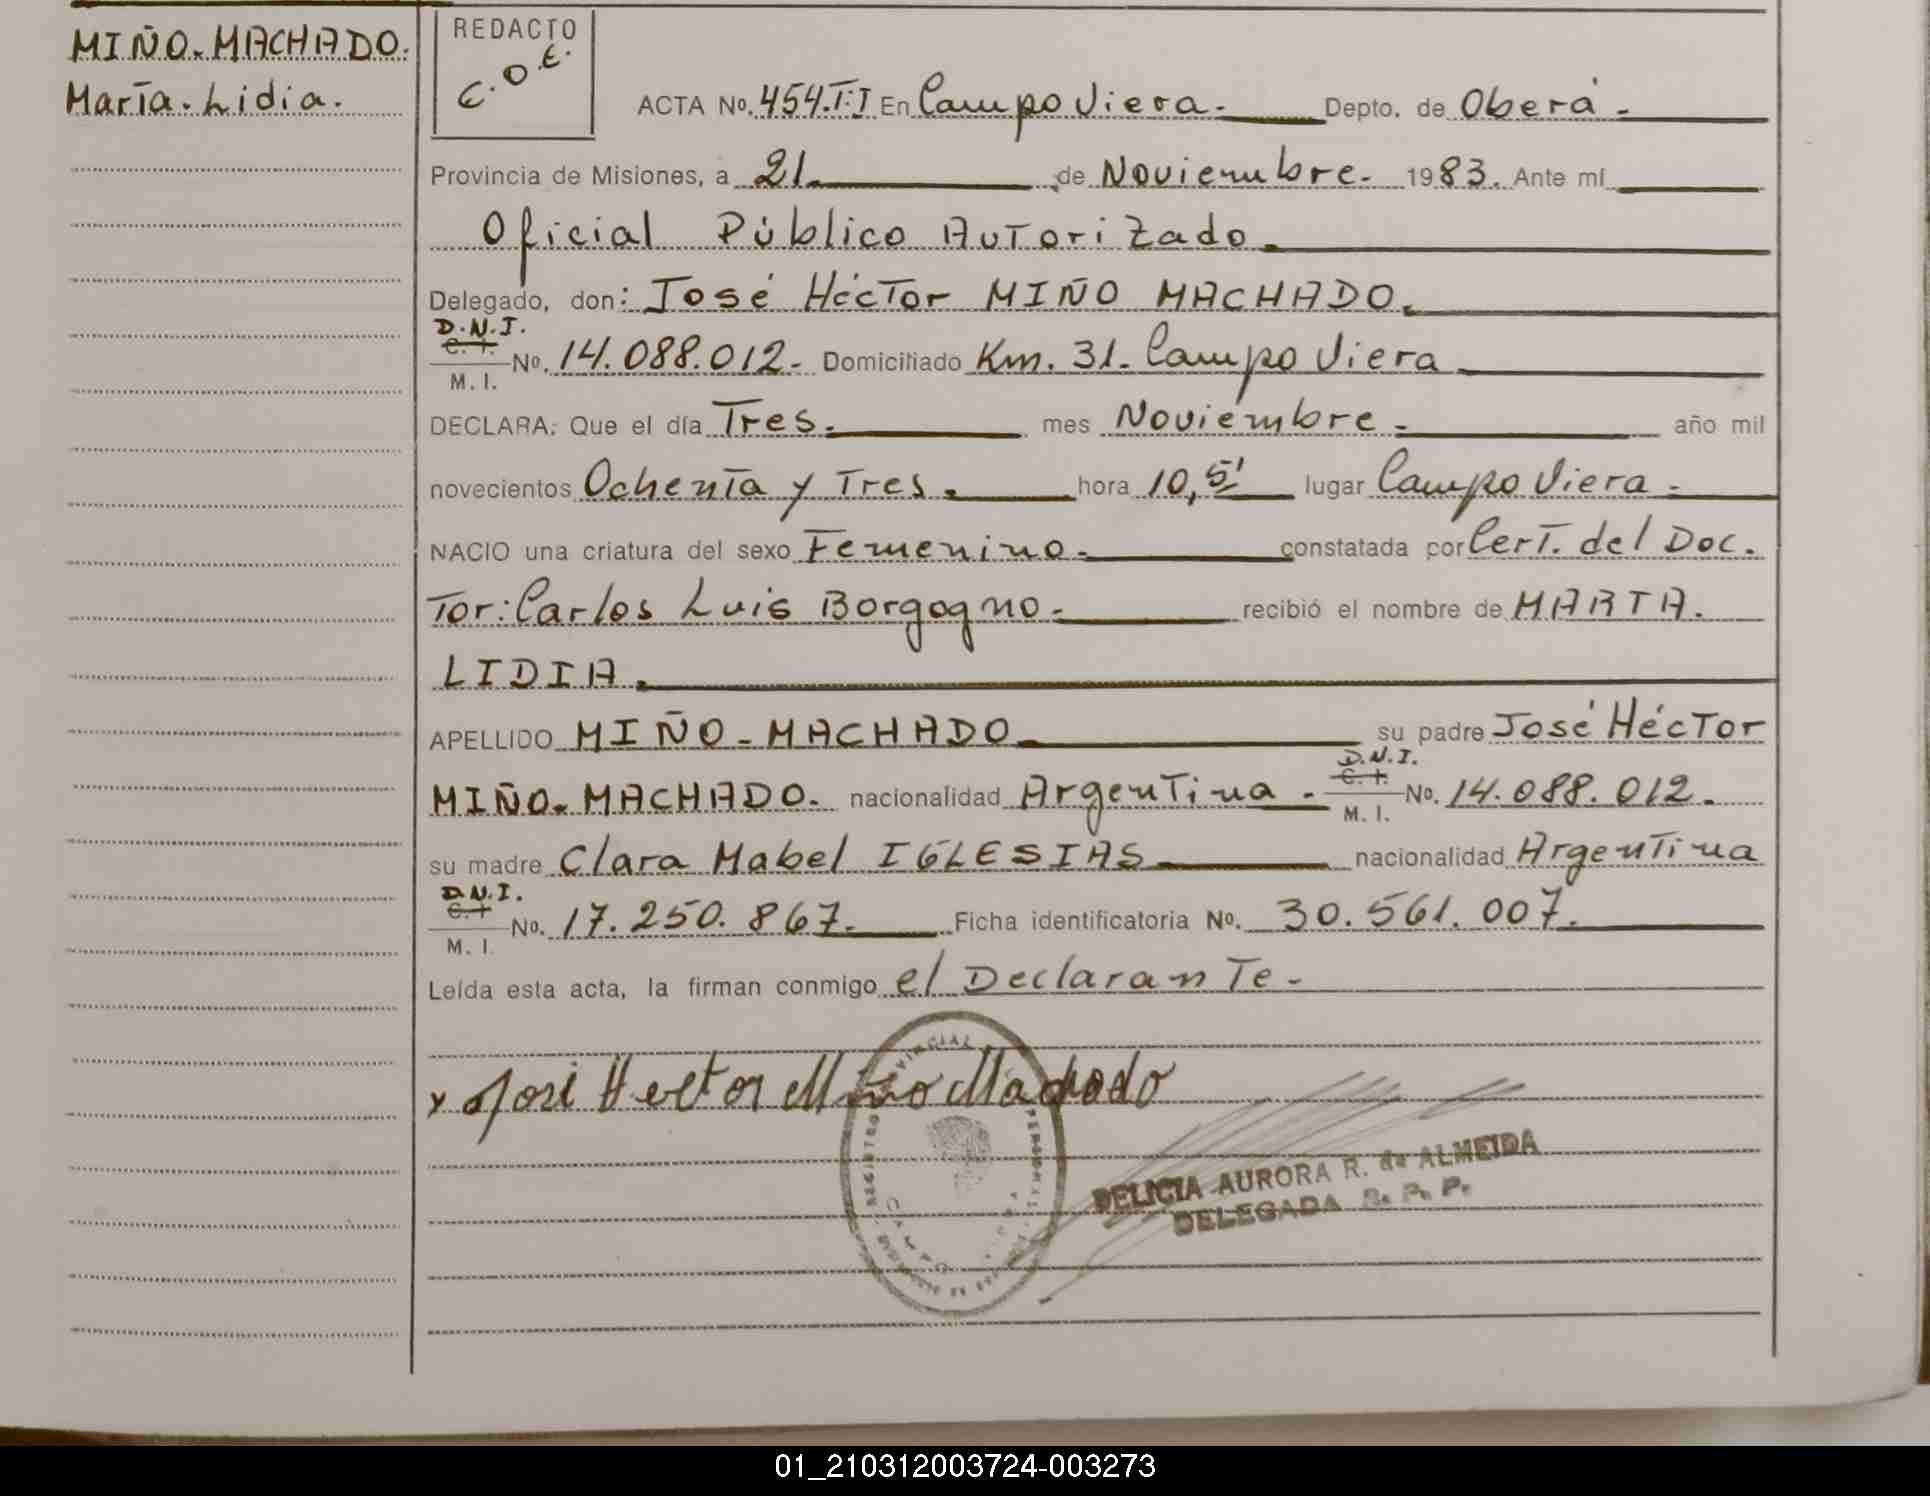 MIÑO-MACHADO.
María-Lidia.
REDACTO
C.O.E.
ACTA No. 454.T:I En Campo Viera.- Depto. de Oberá.-
Provincia de Misiones, a 21. de Noviembre.- 1983. Ante mí
Oficial Público Autorizado.
Delegado, don: José Héctor MIÑO MACHADO.
D.N.I.
C. I.
M. I.
No. 14.088.012.- Domiciliado Km. 31. Campo Viera
DECLARA: Que el día Tres.- mes Noviembre.- año mil
novecientos Ochenta y Tres.- hora 10,5' lugar Campo Viera.-
NACIO una criatura del sexo Femenino.- constatada por Cert. del Doc.
Tor: Carlos Luis Borgogno.- recibió el nombre de MARIA.
LIDIA.
APELLIDO MIÑO-MACHADO su padre José Héctor
D.N.I.
C. I.
M. I.
MIÑO-MACHADO. nacionalidad Argentina.- No. 14.088.012.
su madre Clara Mabel IGLESIAS nacionalidad Argentina
D.N.I.
C. I
M. I.
No. 17.250.867.- Ficha identificatoria No. 30.561.007.
Leída esta acta, la firman conmigo el Declarante.-
x José Hector Miño Machado
DELICIA AURORA R. de ALMEIDA
DELEGADA R. P. P.
01_210312003724-003273